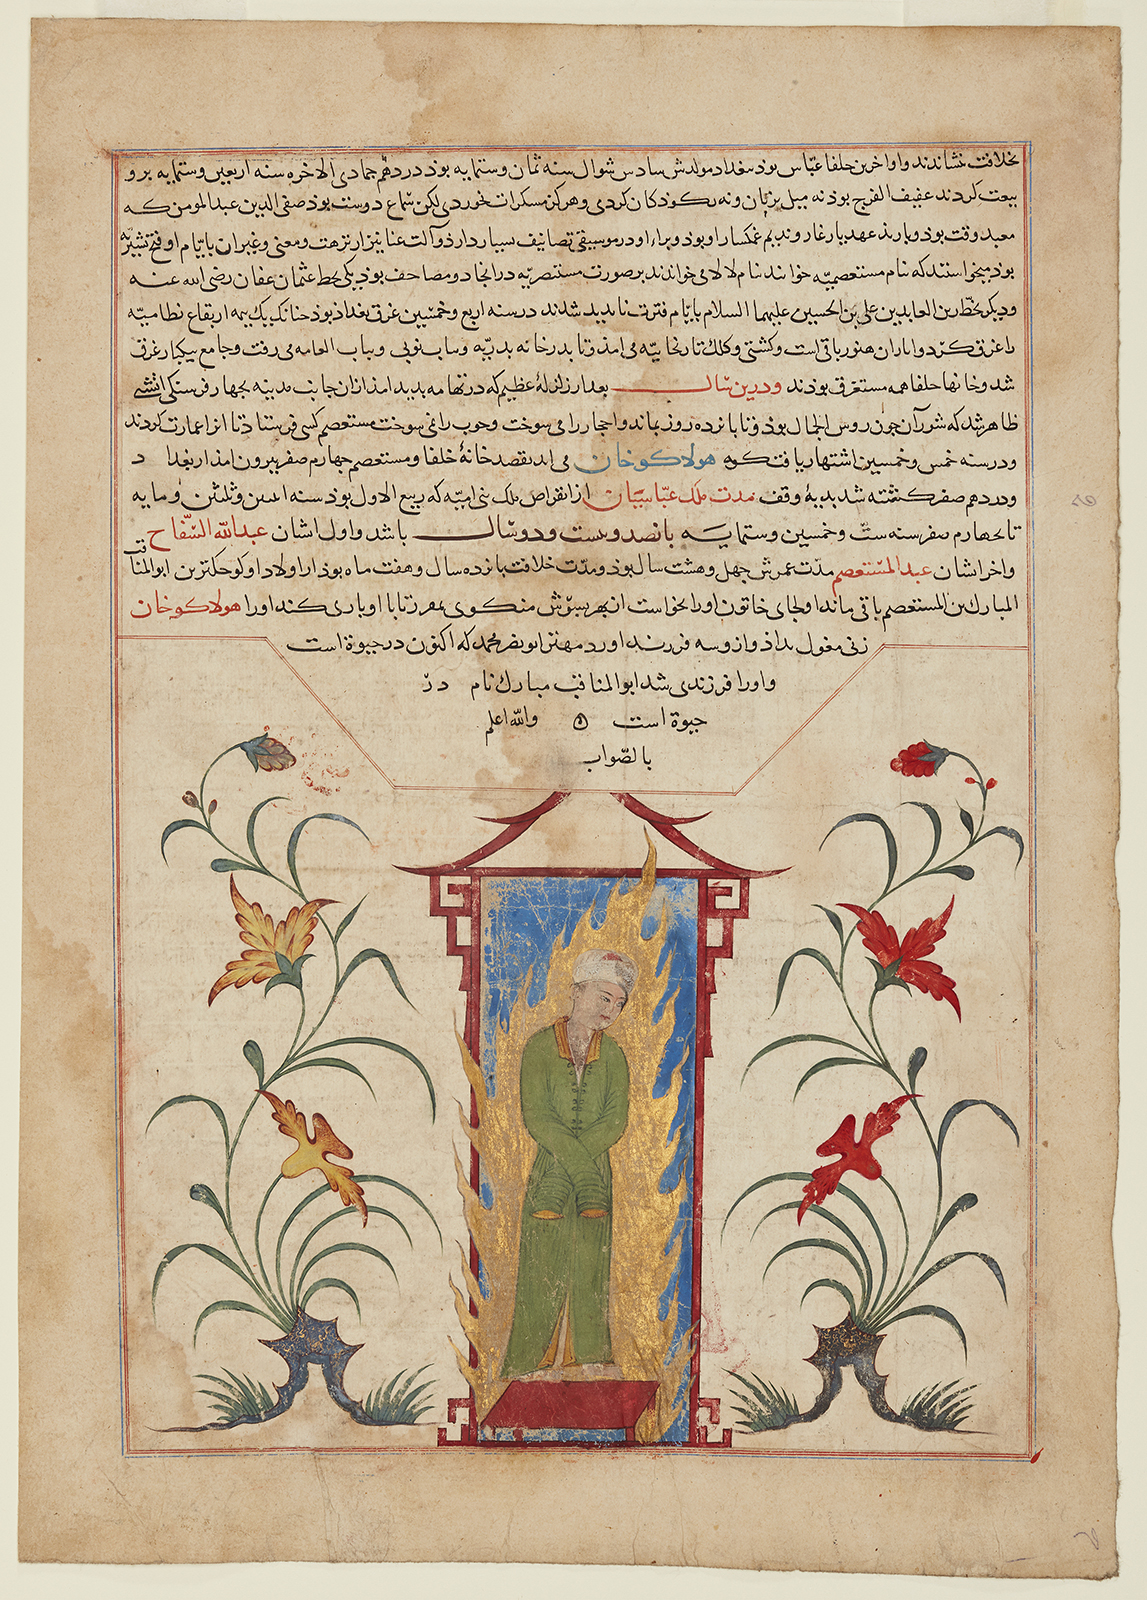 بخلافت نشاندند و او اخرین خلفا عباس بوذ ببغداد مولدش سادس شوال سنه ثمان وستمایه بوذ در دهم جمادی الاخره سنه اربعین وستمایه برو
بیعت کردند عفیف الفرج بوذ نه میل بزنان و نه بکوذکان کردی و هرکز مسکرات نخوردی لکن سماع دوست بوذ صفی الدین عبد المومن که
معبد وقت بوذ و یار غار و ندیم غمکسار او بوذ و برای او در موسیقی تصانیف بسیار دارذ و آلت غنا نیز از نزهت و معنی وغیر ان بایام او
بوذ میخواستند که نام مستعصمیه خوانند نام لالا می خواندند بر صورت مستنصریه در انجا دو مصاحف بوذ یکی بخط عثمان عفان رضی الله عنه
ودیکر بخط زین العابدین علی بن الحسین علیهما السلام بایام فترت نابدید شدند در سنه اربع و خمسین غرق بغداذ بوذ جنانک یک نیمه ارتفاع نظامیه
را غرق کرد و اثار ان هنوز باقی است و کشتی و کلک تا رنحانیه می امذ و تا بدرخانه بدریه و باب نوبی و باب العامه می رفت و جامع بیکبار غرق
شد و خانها خلفا همه مستغرق بوذند و درین سال بعد از زلزلهٔ عظیم که در تهامه بدید امذ از ان جانب مدینه بجهار فرسنکی اتشی
ظاهر شد که شرر آن جون روس الجمال بوذ و تا بانزده روز بماند و احجار را می سوخت و جوب را نمی سوخت مستعصم کسی فرستاذ تا انرا عمارت کردند
ودر سنه خمس و خمسین اشتهار یافت که هولاکو خان می اید بقصد خانهٔ خلفا و مستعصم جهارم صفر بیرون امذ از بغداد
ودر دهم صفر کشته شد بدیهٔ وقف مدت ملک عباسیان از انقراض ملک بنی امیه که ربیع الاول بوذ سنه اثنین و ثلثین و مایه
تا بجهارم صفر سنه ست و خمسین و ستمایه بانصد و بیست و دو سال باشد و اول ایشان عبد الله السفاح
و اخر ایشان عبد المستعصم مدت عمرش جهل و هشت سال بوذ و مدت خلافت بانزده سال و هفت ماه بوذ از اولاد او کوجکترین ابوالمناقب
المبارک بن المستعصم باقی ماند اولجای خاتون او را بخواست ان بهر بسرش منکوی تمور تا با او بازی کند او را هولاکو خان
زنی مغول بداذ و ازو سه فرزند اورد مهتر ابو نصر محمد که اکنون در حیوة است
واورا فرزندی شد ابو المناقب مبارک نام در
حیوة است والله اعلم
بالصواب